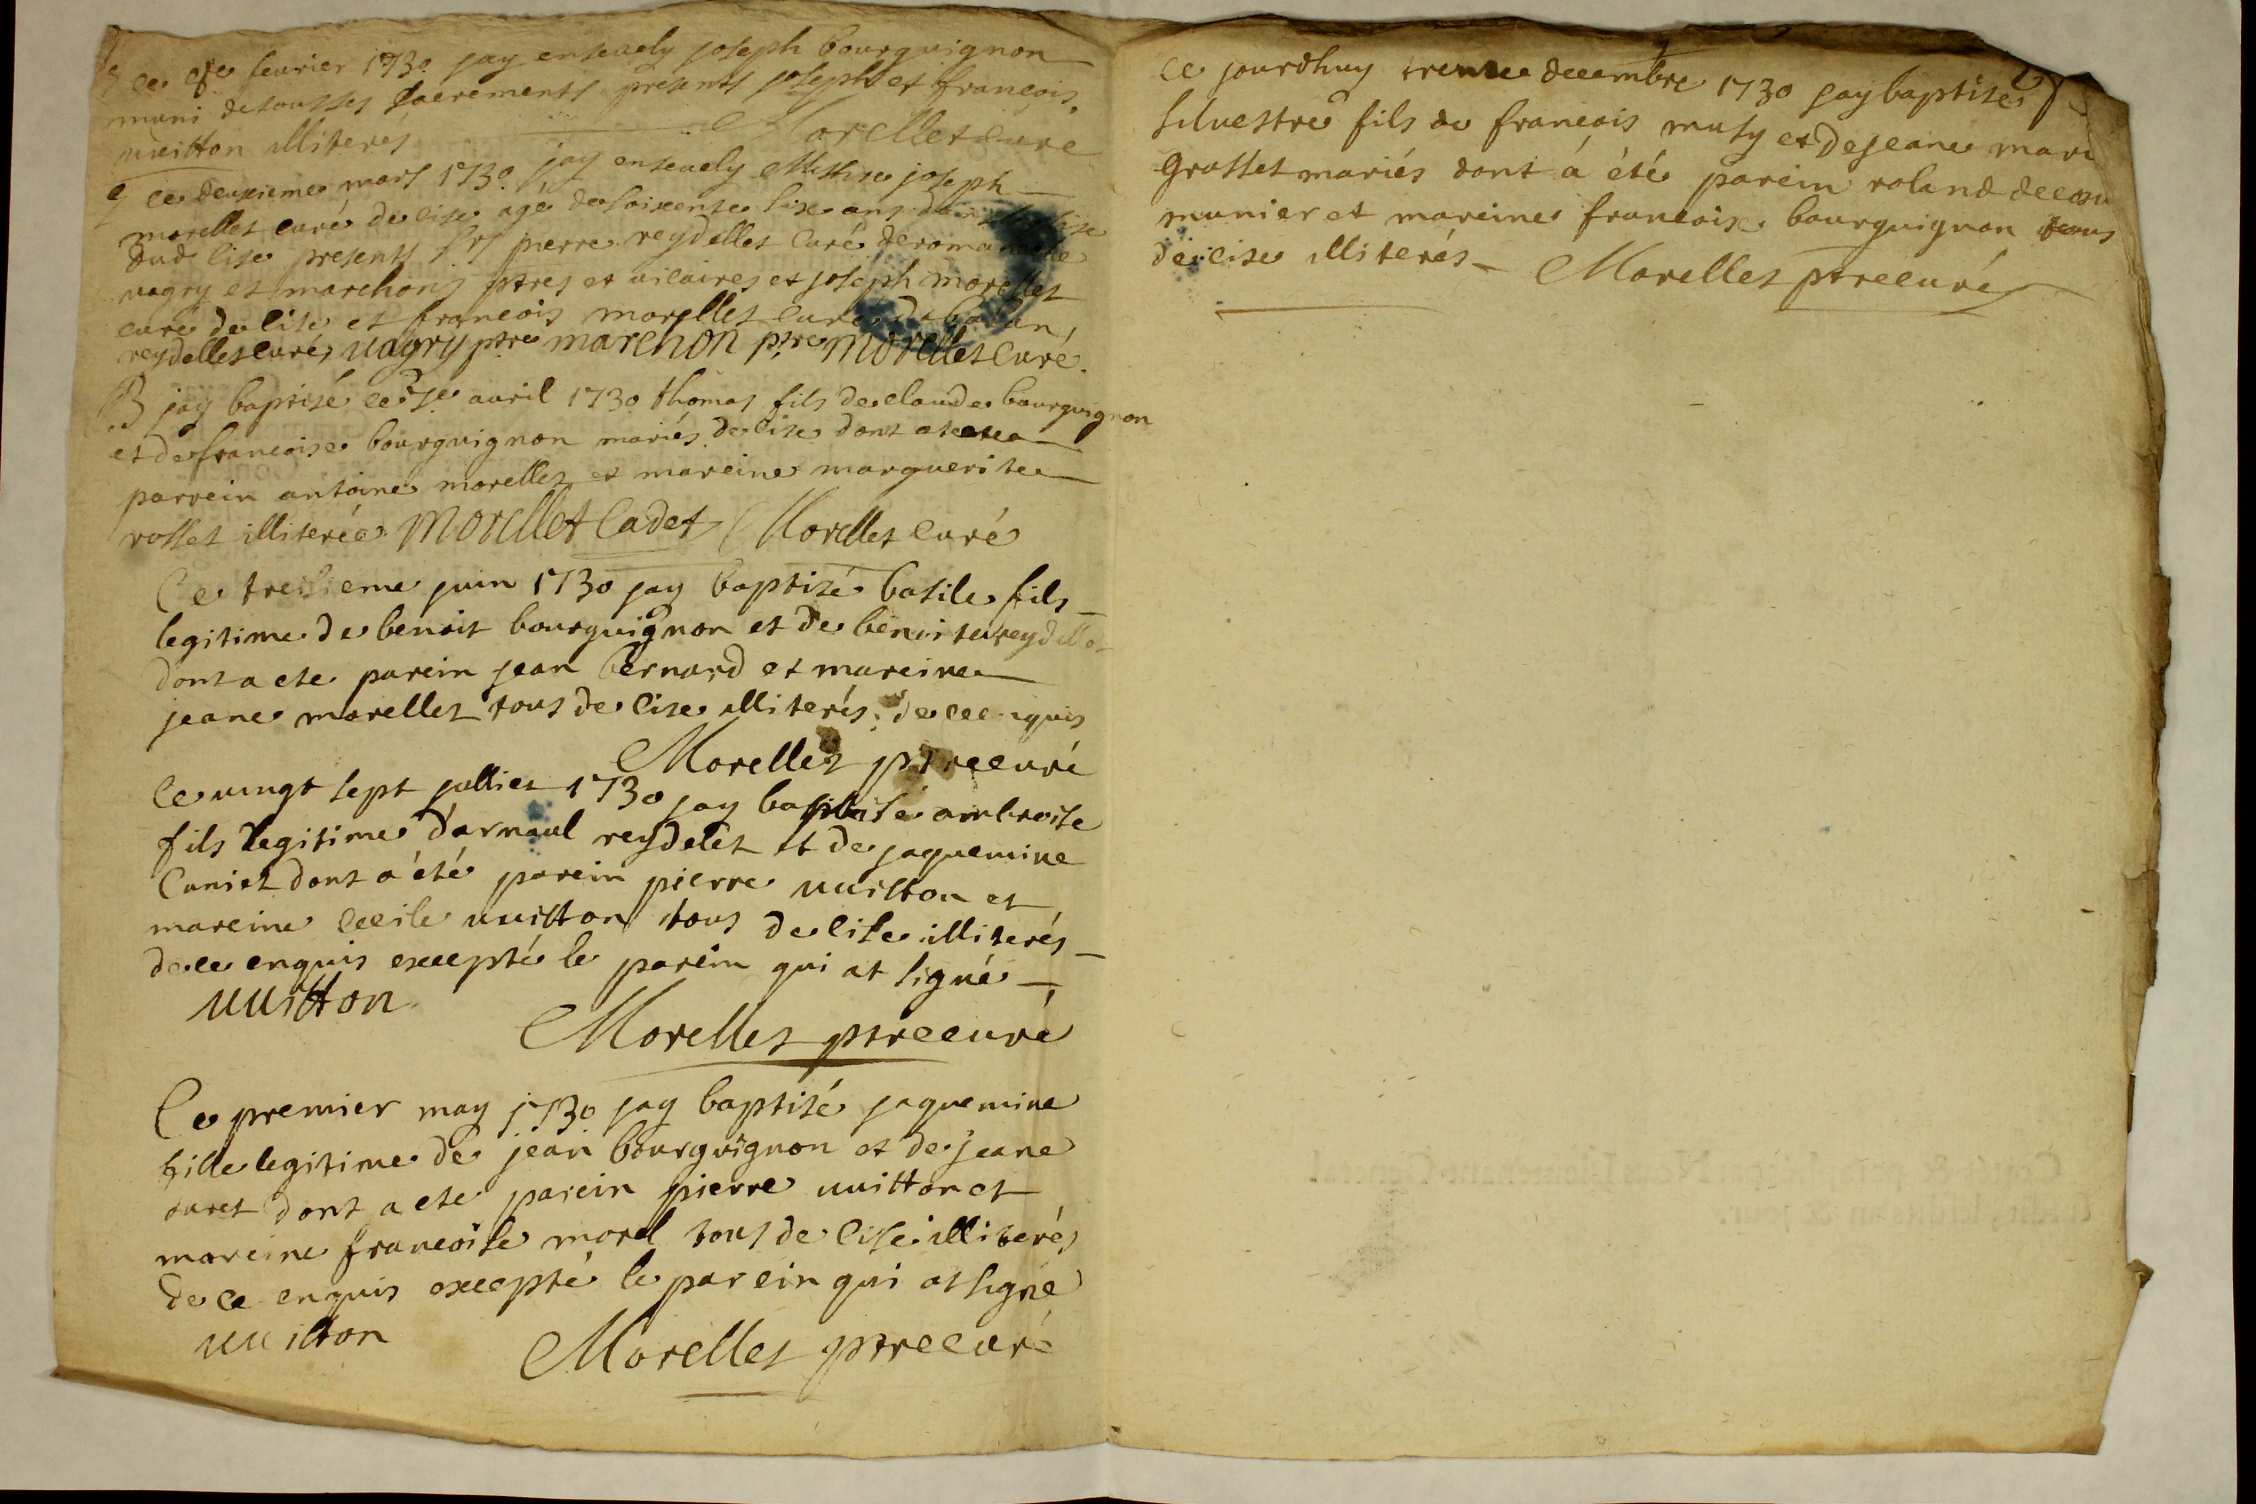 ce 9e feurier 1730 jay enseuely joseph bourguignon
muni de tous ses sacrements presents joseph et francois
vuitton illiterés Morellet curé
ce deuxieme mars 1730 jay enseuely Messire joseph
morellet curé de lise agé de soixente six ans
dud lise presents srs pierre reydellet curé de
uagry et marchon ptres et uicaires et joseph morellet
curé de lise et francois morellet curé
reydellet curé, uagry ptre marchon ptre morellet curé.
B jay baptisé ce auril 1730 thomas fils de claude bourguignon
et de francoise bourguignon mariés de lise dont at ete
parrein antoine morellet et mareine marguerite
rosset illiterée Morellet Cadet Morellet curé
Ce treisieme juin 1730 jay baptizé basile fils
legitime de benoit bourguignon et de benoite reydello
dont a ete parein jean bernard et mareine
jeane morellet tous de lise illiterés de ce enquis
Morellet ptre curé
Ce uingt sept jullier 1730 jay baptisé ambroise
fils legitime d'arnaul reydelet et de jaquemine
Caniet dont a été parein pierre vuitton et
mareine cecile vuitton tous de lise illiterés
de ce enquis excepté le parein qui at signé
vuitton
Morellet ptre curé
Ce premier may 1730 jay baptisé jaquemine
fille legitime de jean bourguignon et de jeane
buret dont a ete parein pierre vuitton et
mareine francoise morel tous de lise illiterés
de ce enquis excepté le parein qui at signé
vuitton
Morellet ptre curé
ce jourdhuy trente decembre 1730 jay baptisé
siluestre fils de francois musy et de jeane mari
grosset mariés dont á été parein roland
munier et mareine francoise bourguignon tous
de lise illiterés Morellet ptre curé